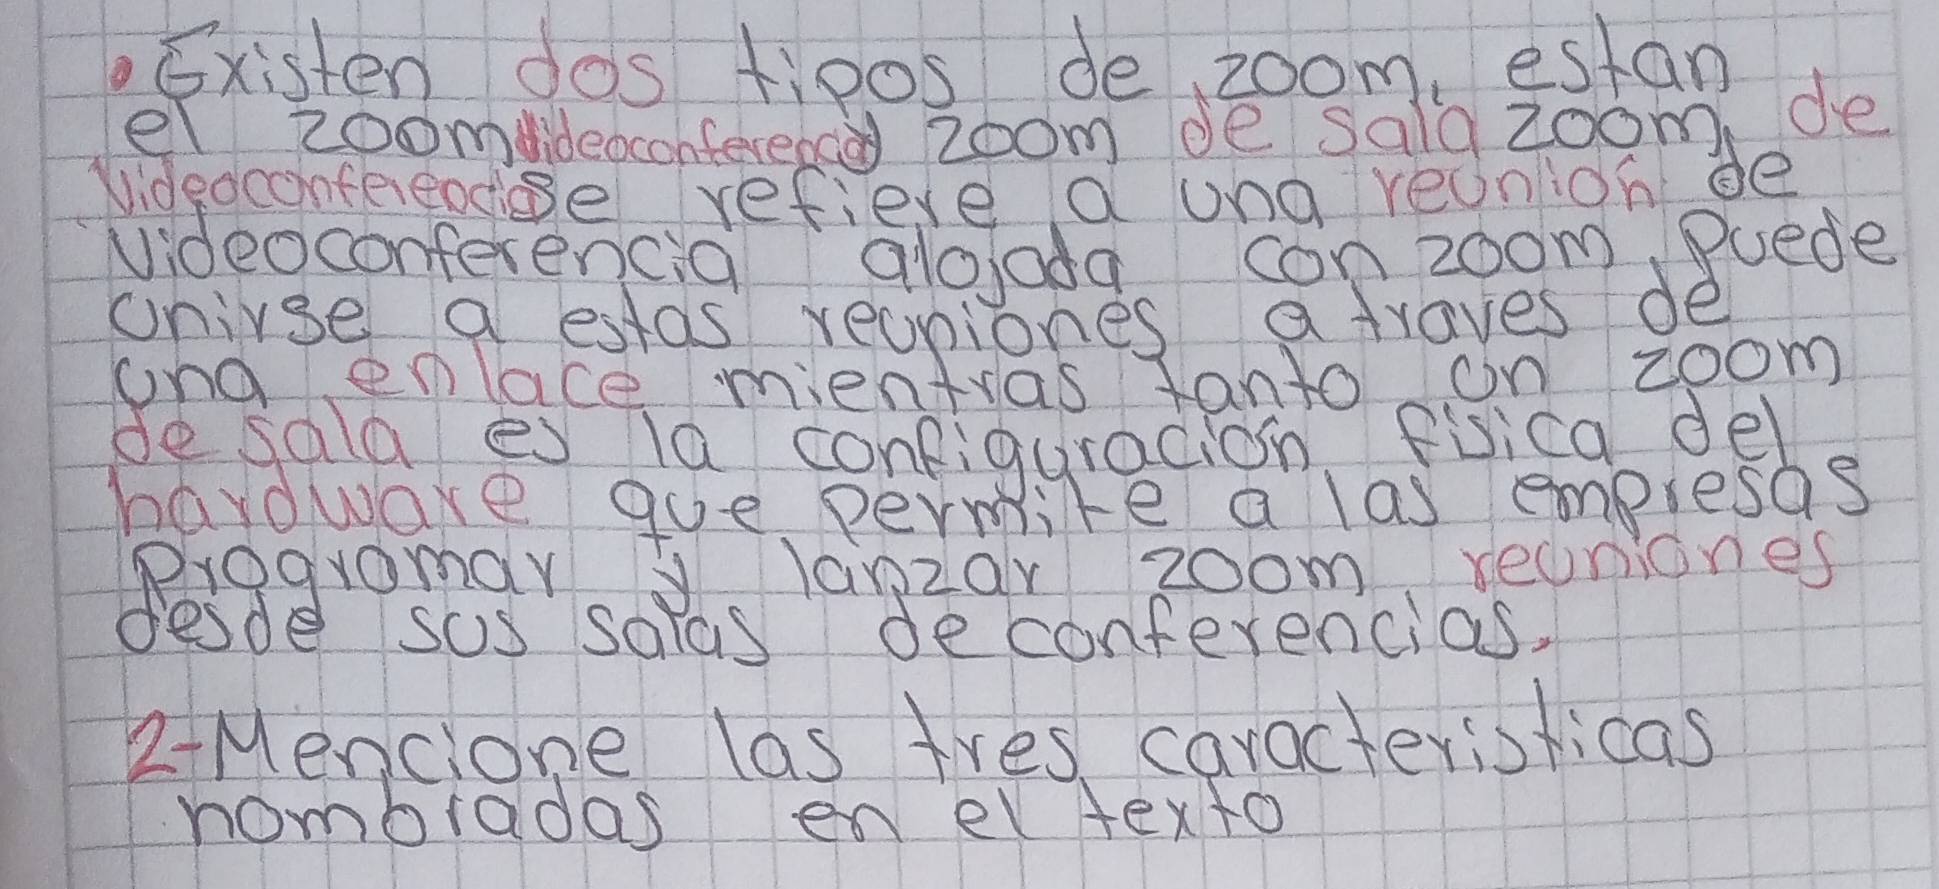 • Existen dos tipos de zoom, estan
el zoom videoconferencia zoom de sala zoom, de
videoconferencia se refiere a una reunion de
videoconferencia alojada con zoom, puede
unirse a estas reuniones a traves de
una enlace mientras tanto un zoom
de sala es la configuración fisica del
hardware que permite a las empresas
programar y lanzar zoom reuniones
desde sus salas de conferencias.
2-Mencione las tres caracteristicas
nombradas en el texto